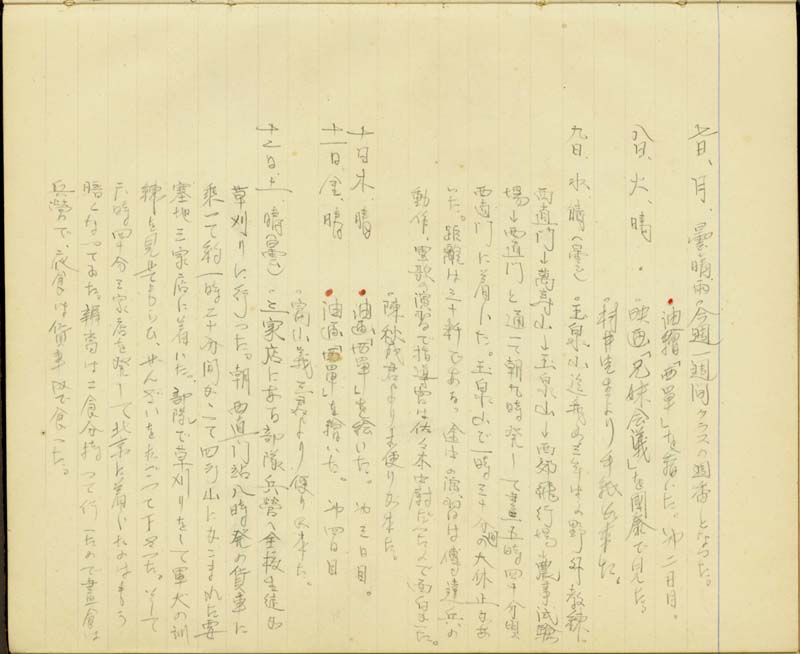 七日、月、曇晴雨・今週一週間クラスの週番となった。
・油繪「西單」を描いた。第二日目。
八日、火、晴・映画「兄妹会議」を國泰で見た。
・村井先生より手紙が来た。
九日、水、晴(曇)・玉泉山迄我が三年生の野外教練、
西直門→萬寿山→玉泉山→西郊飛行場→農事試驗
場→西直門と通って朝九時発して晝五時四十分頃
西直門に着いた。玉泉山で一時三十分週の大休止があ
った。距離は三十粁である。途中の演習は傳達兵の
動作、軍歌の演習で指導官は佐々木中尉だったので面白かった。
・陳秋茂君より手便りが来た。
十日木、晴・油画「西單」を絵いた。第三日目。
十一日、金、晴・油画「西單」を繪いた。第四日目
・富山義三君より便りが来た。
十二日、土、晴(曇)・三家店にある部隊兵營へ全校生徒が
草刈りに行った。朝西直門站八時発の貨車に
乗って約一時二十分間かゝって四方山にかこまれた要
塞地三家店に着いた。部隊で草刈りをして軍犬の訓
練を見せてもらひ、ぜんざいをたべって下さった。そして
六時四十分三家店を発して北京に着いたのはもう
暗くなってゐた。辨當は二食分持って行ったので晝食は
兵營で、夜食は貨車内で食った。